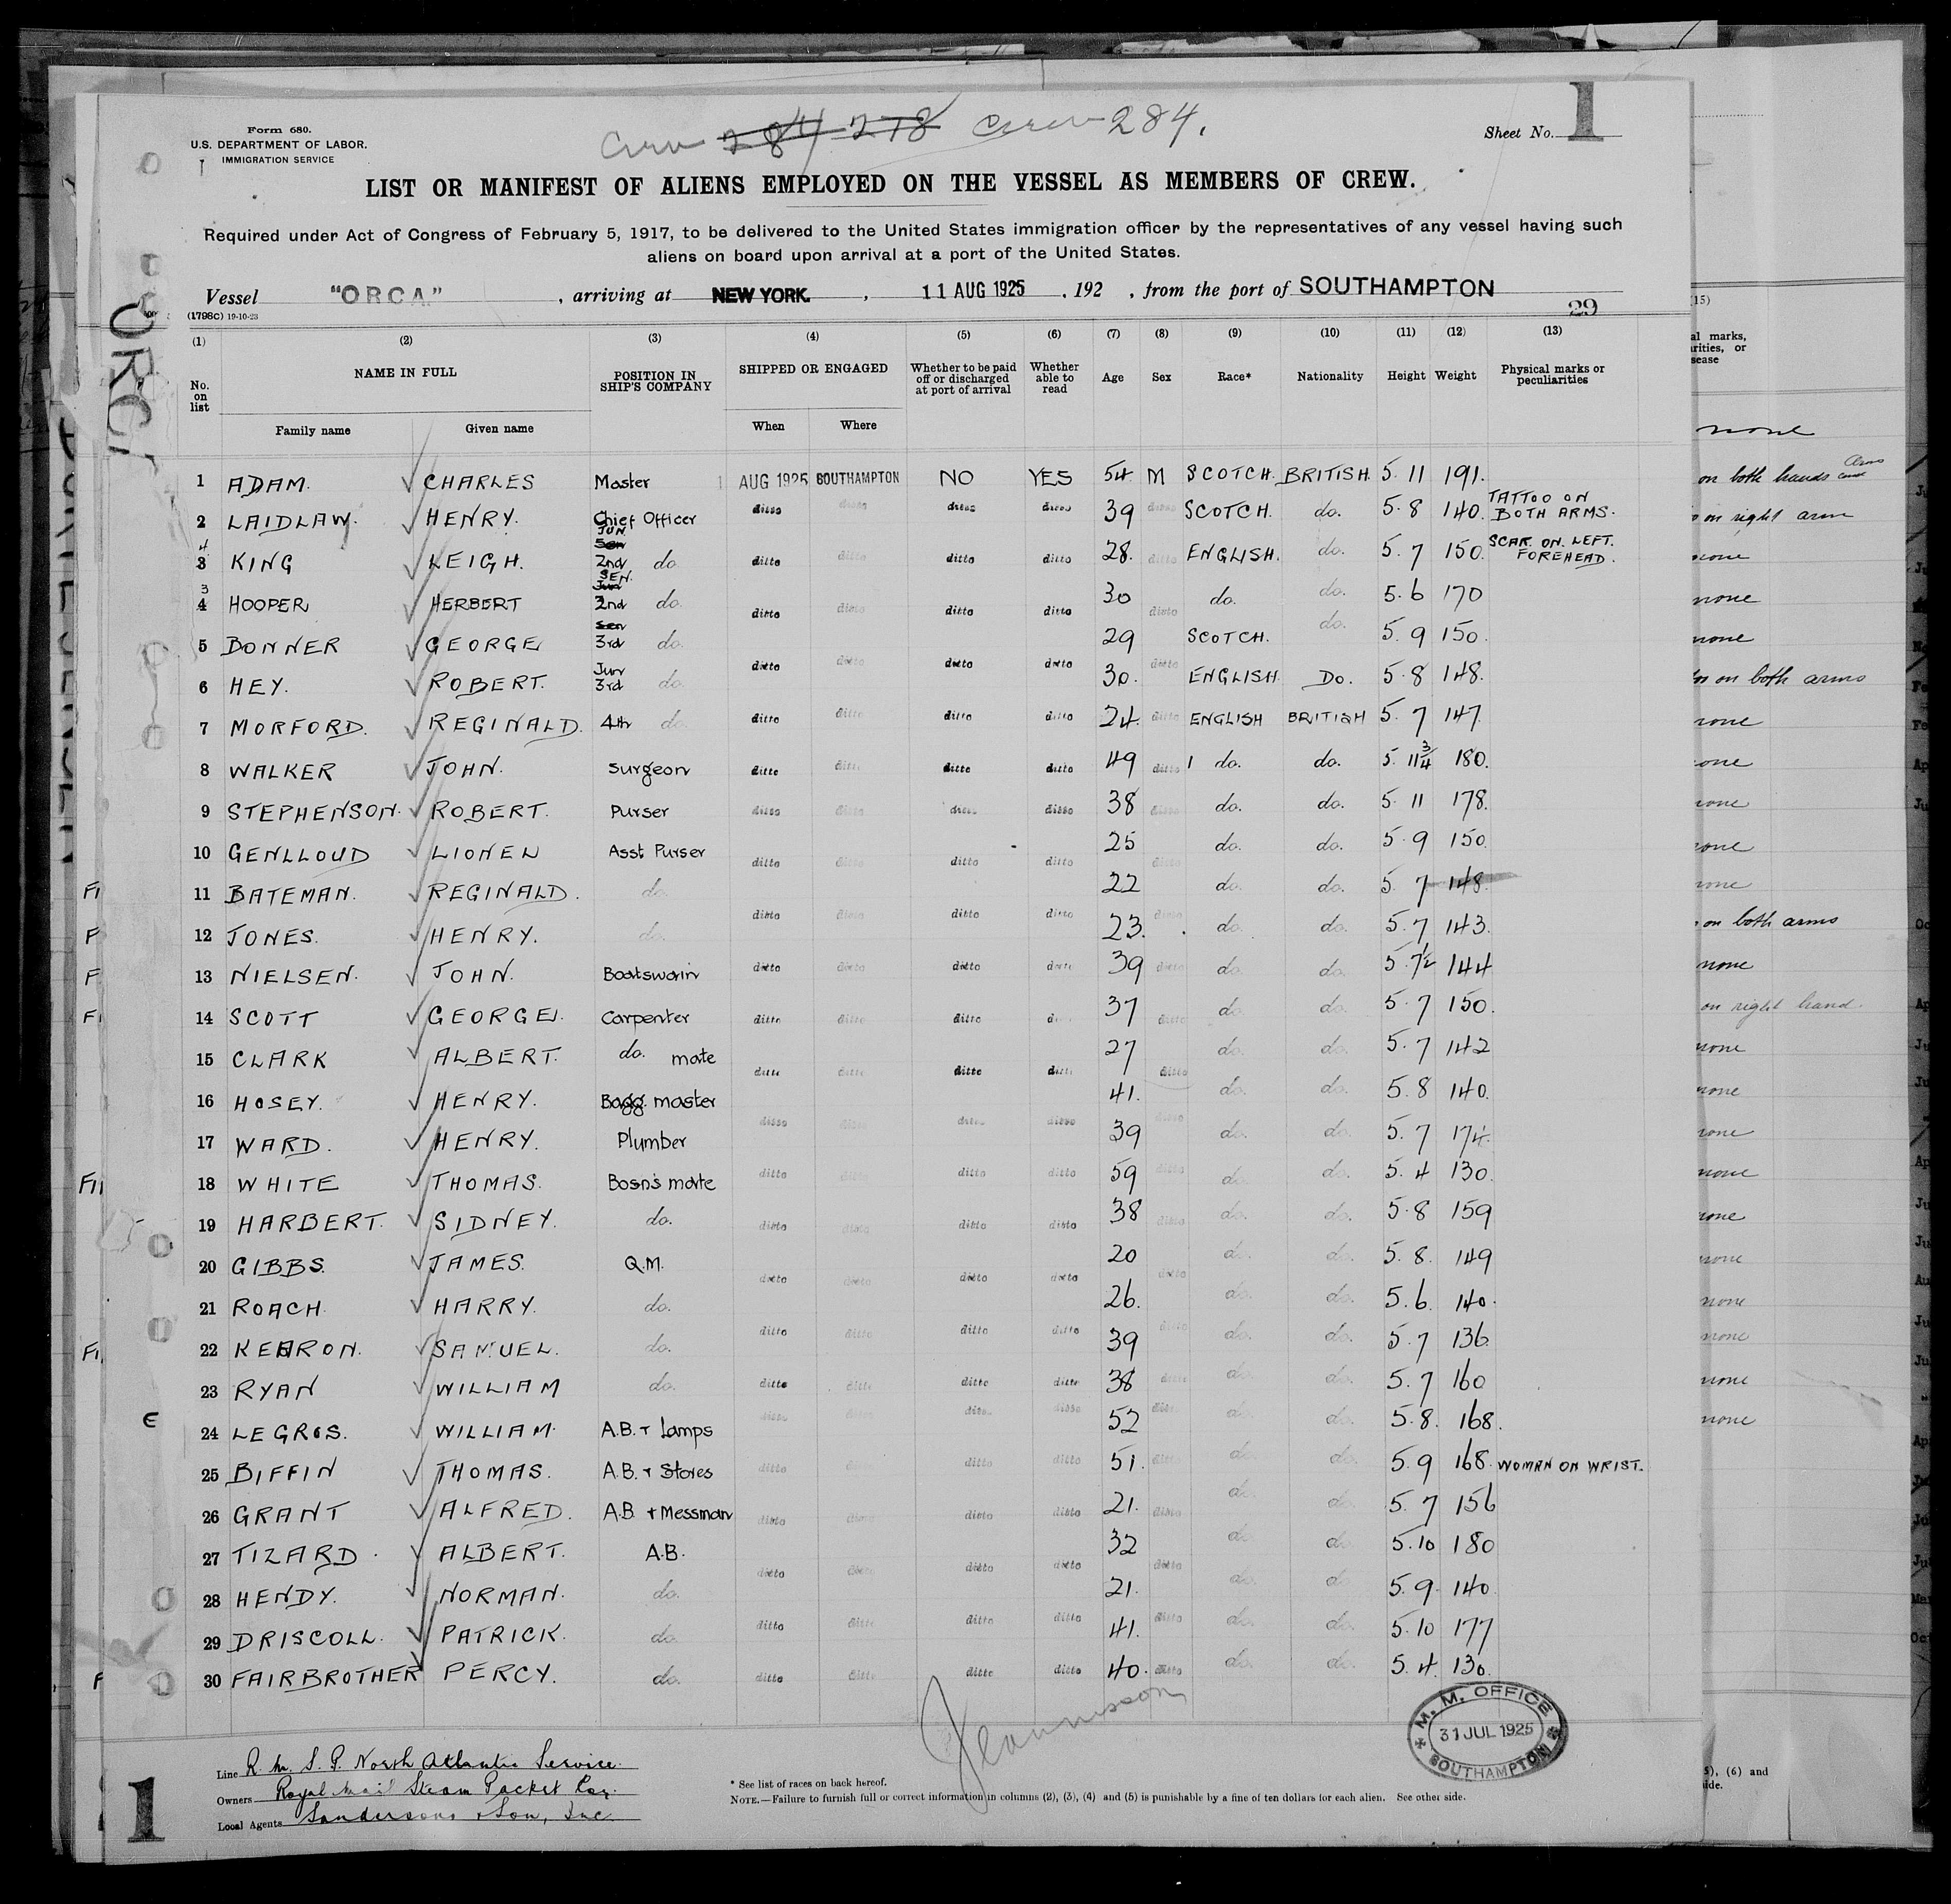 Form 680.
U.S. DEPARTMENT OF LABOR.
IMMIGRATION SERVICE
Crew 284 278 Crew 284.
Sheet No. 1
LIST OR MANIFEST OF ALIENS EMPLOYED ON THE VESSEL AS MEMBERS OF CREW.
Required under Act of Congress of February 5, 1917, to be delivered to the United States immigration officer by the representatives of any vessel having such
aliens on board upon arrival at a port of the United States.
Vessel "ORCA", arriving at NEW YORK, 11 AUG 1925, 192 , from the port of SOUTHAMPTON
(1798C) 19-10-23
29
(1) (2) (3) (4) (5) (6) (7) (8) (9) (10) (11) (12) (13)
No. on list NAME IN FULL POSITION IN SHIP'S COMPANY SHIPPED OR ENGAGED Whether to be paid off or discharged at port of arrival Whether able to read Age Sex Race* Nationality Height Weight Physical marks or peculiarities
Family name Given name When Where
1 ADAM. CHARLES Master 1 AUG 1925 SOUTHAMPTON NO YES 54. M SCOTCH. BRITISH. 5. 11 191.
2 LAIDLAW. HENRY. Chief Officer ditto ditto ditto ditto 39 ditto SCOTCH. do. 5.8 140. TATTOO ON BOTH ARMS.
4 3 KING LEIGH. JUN. Sen 2nd do ditto ditto ditto ditto 28. ditto ENGLISH. do. 5.7 150. SCAR ON LEFT. FOREHEAD.
3 4 HOOPER HERBERT SEN. Jun 2nd do. ditto ditto ditto ditto 30 ditto do. do. 5.6 170
5 BONNER GEORGE Sen 3rd do. 29 SCOTCH. do. 5.9 150.
6 HEY. ROBERT. Jun 3rd do. ditto ditto ditto ditto 30. ditto ENGLISH. Do. 5.8 148.
7 MORFORD. REGINALD. 4th do. ditto ditto ditto ditto 24. ditto ENGLISH BRITISH 5.7 147.
8 WALKER JOHN. Surgeon ditto ditto ditto ditto 49 ditto do. do. 5. 11 3/4 180.
9 STEPHENSON. ROBERT. Purser ditto ditto ditto ditto 38 ditto do. do. 5 11 178.
10 GENLLOUD LIONEL Asst Purser ditto ditto ditto ditto 25 ditto do. do. 5.9 150.
11 BATEMAN. REGINALD. do. 22 do. do. 5. 7 148.
12 JONES. HENRY. do. ditto ditto ditto ditto 23. ditto do. do. 5.7 143.
13 NIELSEN. JOHN. Boatswain ditto ditto ditto ditto 39 ditto do. do. 5.7½ 144
14 SCOTT GEORGE. Carpenter ditto ditto ditto 37 ditto do. do. 5.7 150.
15 CLARK ALBERT. do. mate ditto ditto ditto ditto 27 ditto do. do. 5.7 142
16 HOSEY. HENRY. Bagg. master 41. do. do. 5.8 140.
17 WARD. HENRY. Plumber ditto ditto ditto ditto 39 ditto do. do. 5.7 174.
18 WHITE THOMAS. Bosn's mate ditto ditto ditto ditto 59 ditto do. do. 5.4 130.
19 HARBERT. SIDNEY. do. ditto ditto ditto ditto 38 ditto do. do. 5.8 159
20 GIBBS. JAMES. Q.M. ditto ditto ditto ditto 20 ditto do. do. 5.8. 149
21 ROACH. HARRY. do. 26. do. do. 5.6. 140.
22 KEARON. SAMUEL. do. ditto ditto ditto ditto 39 ditto do. do. 5.7 136.
23 RYAN WILLIAM do. ditto ditto ditto ditto 38 ditto do. do. 5.7 160
24 LE GROS. WILLIAM. A.B. + Lamps ditto ditto ditto ditto 52 ditto do. do. 5.8. 168.
25 BIFFIN THOMAS. A.B. + Stores ditto ditto ditto ditto 51. ditto do. do. 5.9 168. WOMAN ON WRIST.
26 GRANT ALFRED. A.B. + Messman ditto ditto ditto ditto 21. ditto do. do. 5.7 156
27 TIZARD. ALBERT. A.B. 32 do. do. 5.10 180
28 HENDY. NORMAN. do. ditto ditto ditto ditto 21. ditto do. do. 5.9. 140.
29 DRISCOLL. PATRICK. do. ditto ditto ditto ditto 41. ditto do. do. 5.10 177
30 FAIRBROTHER PERCY. do. ditto ditto ditto ditto 40. ditto do. do. 5.4. 130.
M. M. OFFICE
31 JUL 1925
SOUTHAMPTON
Line R. M. S. P. North Atlantic Service.
Owners Royal Mail Steam Packet Coy.
Local Agents Sanderson & Son, Inc.
1
* See list of races on back hereof.
NOTE.—Failure to furnish full or correct information in columns (2), (3), (4) and (5) is punishable by a fine of ten dollars for each alien. See other side.
(15)
none
on both hands and arms
on right arm
none
none
none
on both arms
none
none
none
none
none
on both arms
none
on right hand.
none
none
none
none
none
none
none
none
none
none